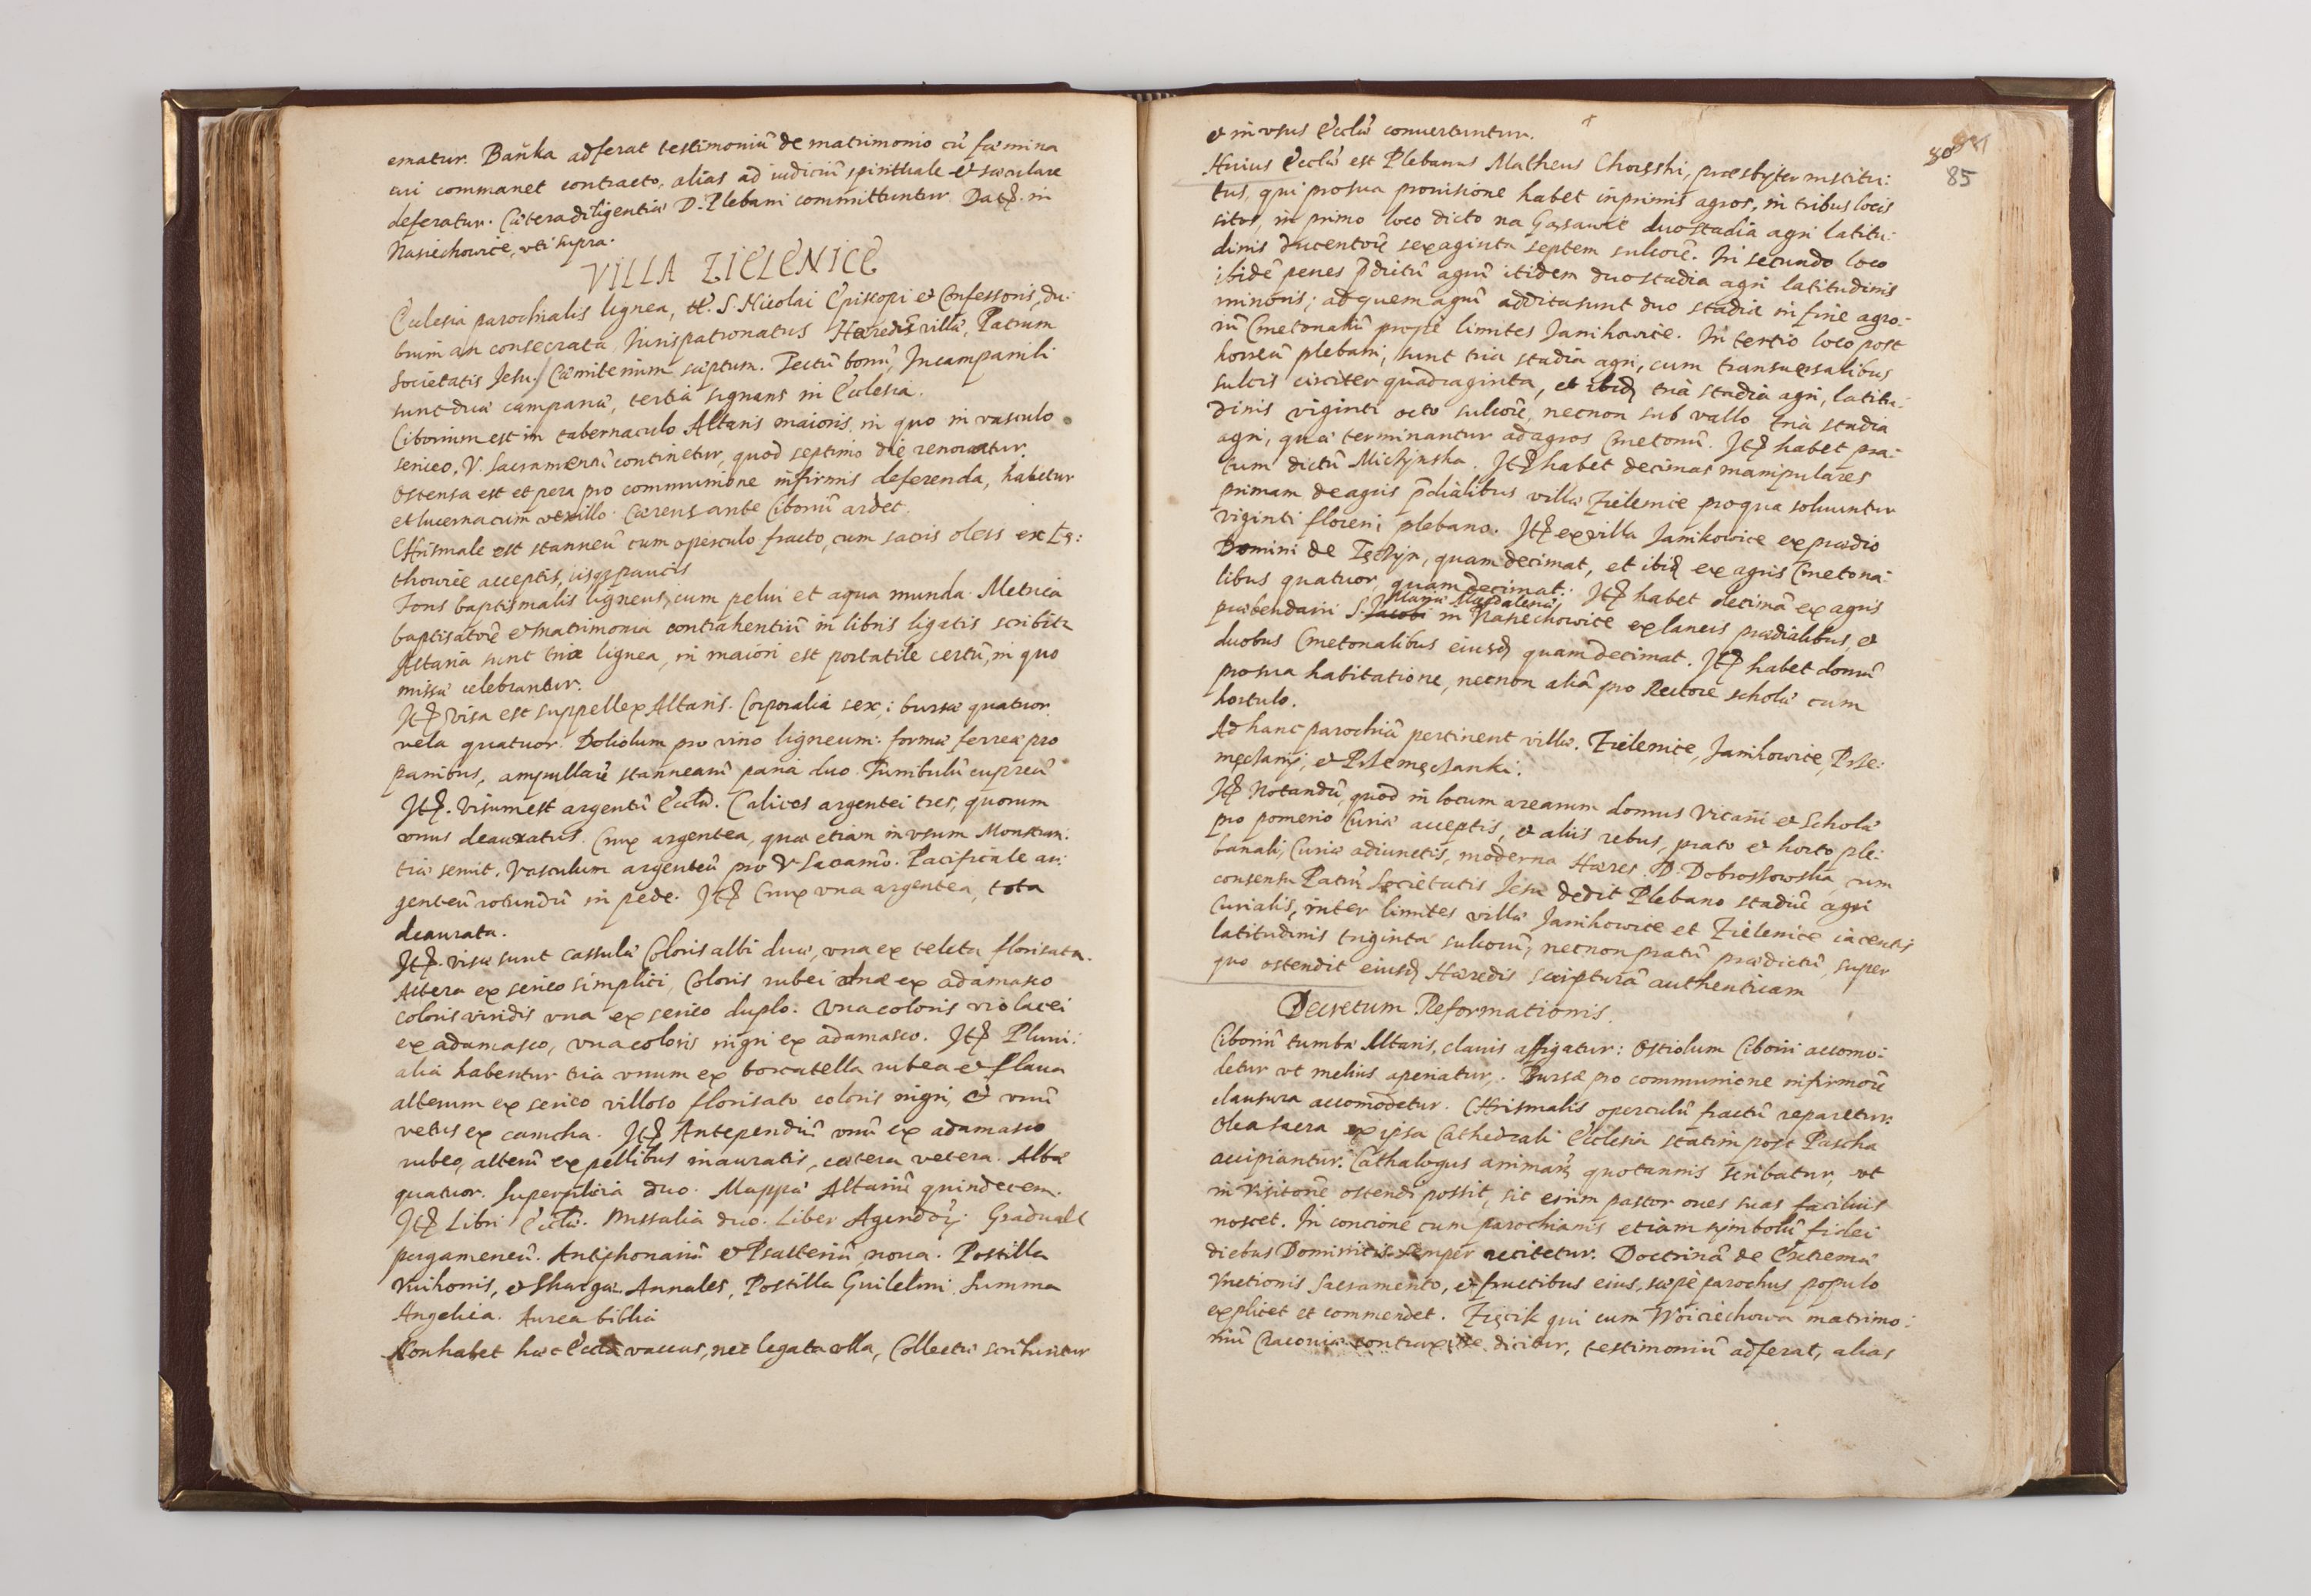 ematur. Bańka adferat testimoniũ de matrimonio cũ fæmina
cui commanet contracto, alias ad iudiciũ spirituale et sæculare
deferatur. Cætera diligentiæ D. Plebani committuntur. Datꝭ. in
Nasiechowice, vti supra.
VILLA ZIELENICE
Ecclesia parochialis lignea, tt. S. Nicolai Episcopi et Confessoris, du:
bium an consecrata, Iurispatronatus Hæredis villæ, Patrum
Societatis Jesu. Cæmiterium sæptum. Tectũ bonũ, In campanili
sunt duæ campanæ, tertia signans in Ecclesia.
Ciborium est in tabernaculo Altaris maioris, in quo in vasculo
sericeo, V. Sacramentũ continetur, quod septimo die renouatur.
Ostensa est et pera pro communione infirmis deferenda, habetur
et lucerna cum vexillo. Cæreus ante Ciboriũ ardet.
Chrismale est stanneũ cum operculo fracto, cum sacris oleis ex
thowice acceptis, iisqꝫ paucis
Fons baptismalis ligneus, cum pelui et aqua munda. Metrica
baptisatorũ et matrimonia contrahentiũ in libris ligatis scribitr
Altaria sunt tria lignea, in maiori est portatile certũ, in quo
missæ celebrantur.
Itꝫ visa est suppellex Altaris. Corporalia sex; bursæ quatuor.
vela quatuor. Doliolum pro vino ligneum: formæ ferreæ pro
panibus, ampullarũ stannearũ paria duo. Turribulũ cupreũ
Itꝫ. Visum est argentũ Eccłæ. Calices argentei tres, quorum
vnus deauratus. Crux argentea, quæ etiam in vsum Monstran:
tiæ seruit. Vasculum argenteũ pro V. Sacramto. Pacificale ar:
genteũ rotundũ in pede. Itꝫ Crux vna argentea, tota
deaurata.
Itꝫ. visæ sunt cassulæ Coloris albi duæ, vna ex teleta florisata.
Altera ex serico simplici, Coloris rubei duæ ex adamasco
coloris viridis vna ex serico duplo: Vna coloris violacei
ex adamasco, vna coloris nigri ex adamasco. Itꝫ Pluui:
alia habentur tria vnum ex borcatella rubea et flaua
alterum ex serico villoso florisato coloris nigri, et vnũ
vetus ex camcha. Itꝫ Antependiũ vnũ ex adamasco
rubeo, alterũ ex pellibus inauratis, cætera vetera. Albæ
quatuor. Superplicia duo. Mappæ Altariũ quindecem.
Itꝫ Libri Eccłæ. Missalia duo. Liber Agendorꝫ. Graduale
pergameneũ. Antiphonariũ et Psalteriũ noua. Postilla
Vuikonis, et Skargæ Annales, Postilla Guilelmi. Summa
Angelica. Aurea biblia
Non habet hæc Eccła vaccas, nec legata vlla, Collectæ scribuntur
80 81
85
et in vsus Eccłæ conuertuntur.
Huius Eccłæ est Plebanus Matheus præsbyter institu:
tus, qui pro sua prouisione habet inprimis agros, in tribus locis
sitos, in primo loco dicto na duo stadia agri latitu:
dinis ducentorũ sexaginta septem sulcorũ. In secundo loco
ibidẽ penes p̃dictũ agrũ itidem duo stadia agri latitudinis
minoris; ad quem agrũ addita sunt duo stadia in fine agro:
rũ Cmetonaliũ prope limites Janikowice. In tertio loco post
horreũ plebani, sunt tria stadia agri, cum transuersalibus
sulcis circiter quadraginta, et ibidꝫ tria stadia agri, latitu:
dinis viginti octo sulcorũ, necnon sub vallo tria stadia
agri, quæ terminantur ad agros Cmetonũ. Itꝫ habet pra:
tum dictũ Michynska. Itꝫ habet decimas manipulares
primam de agris p̃dialibus villæ Zielenice pro qua soluuntur
viginti floreni plebano. Itꝫ ex villa Janikowice ex prædio
Domini de Tęczyn, quam decimat, et ibidꝫ ex agris Cmetona:
libus quatuor, quam decimat. Itꝫ habet decimã ex agris
Mariæ Magdalenæ
præbendarii S. Jacobi in Nasiechowice ex laneis prædialibus, et
duobus Cmetonalibus eiusdꝫ quam decimat. Itꝫ habet domũ
pro sua habitatione, necnon aliã pro Rectore scholæ cum
hortulo.
Ad hanc parochiã pertinent villæ. Zielenice, Janikowice, Prze:
męczany, et Przemęczanki.
Itꝫ Notandũ, quod in locum arearum domus Vicarii et Scholæ
pro pomerio Curiæ acceptis, et aliis rebus, prato et horto ple:
banali, Curiæ adiunctis, moderna Hæres D. Dobroslowska, cum
consensu Patrũ Societatis Jesu dedit Plebano stadiũ agri
Curialis, inter limites villæ Janikowice et Zielenice iacentis
latitudinis triginta sulcorũ, necnon pratũ prædictũ, super
quo ostendit eiusdꝫ Hæredis scripturã authenticam
Decretum Reformationis.
Ciboriũ tumbæ Altaris, clauis affigatur: Ostiolum Ciborii accomo:
detur vt melius aperiatur. Bursæ pro communione infirmorũ
clausura accomodetur. Chrismalis operculũ fractũ reparetur.
Olea sacra ex ipsa Cathedrali Ecclesia statim post Pascha
accipiantur. Cathalogus animarũ quotannis scribatur, vt
in visitõne ostendi possit, sic enim pastor oues suas facilius
noscet. In concione cum parochianis etiam symbolũ fidei
diebus Dominicis semper recitetur. Doctrinã de Extremæ
Vnctionis Sacramento, et fructibus eius, sæpe parochus populo
explicet et commendet. Zięcik qui cum Woiciechowa matrimo:
niũ Cracouiæ contraxisse dicitur, testimoniũ adferat, alias